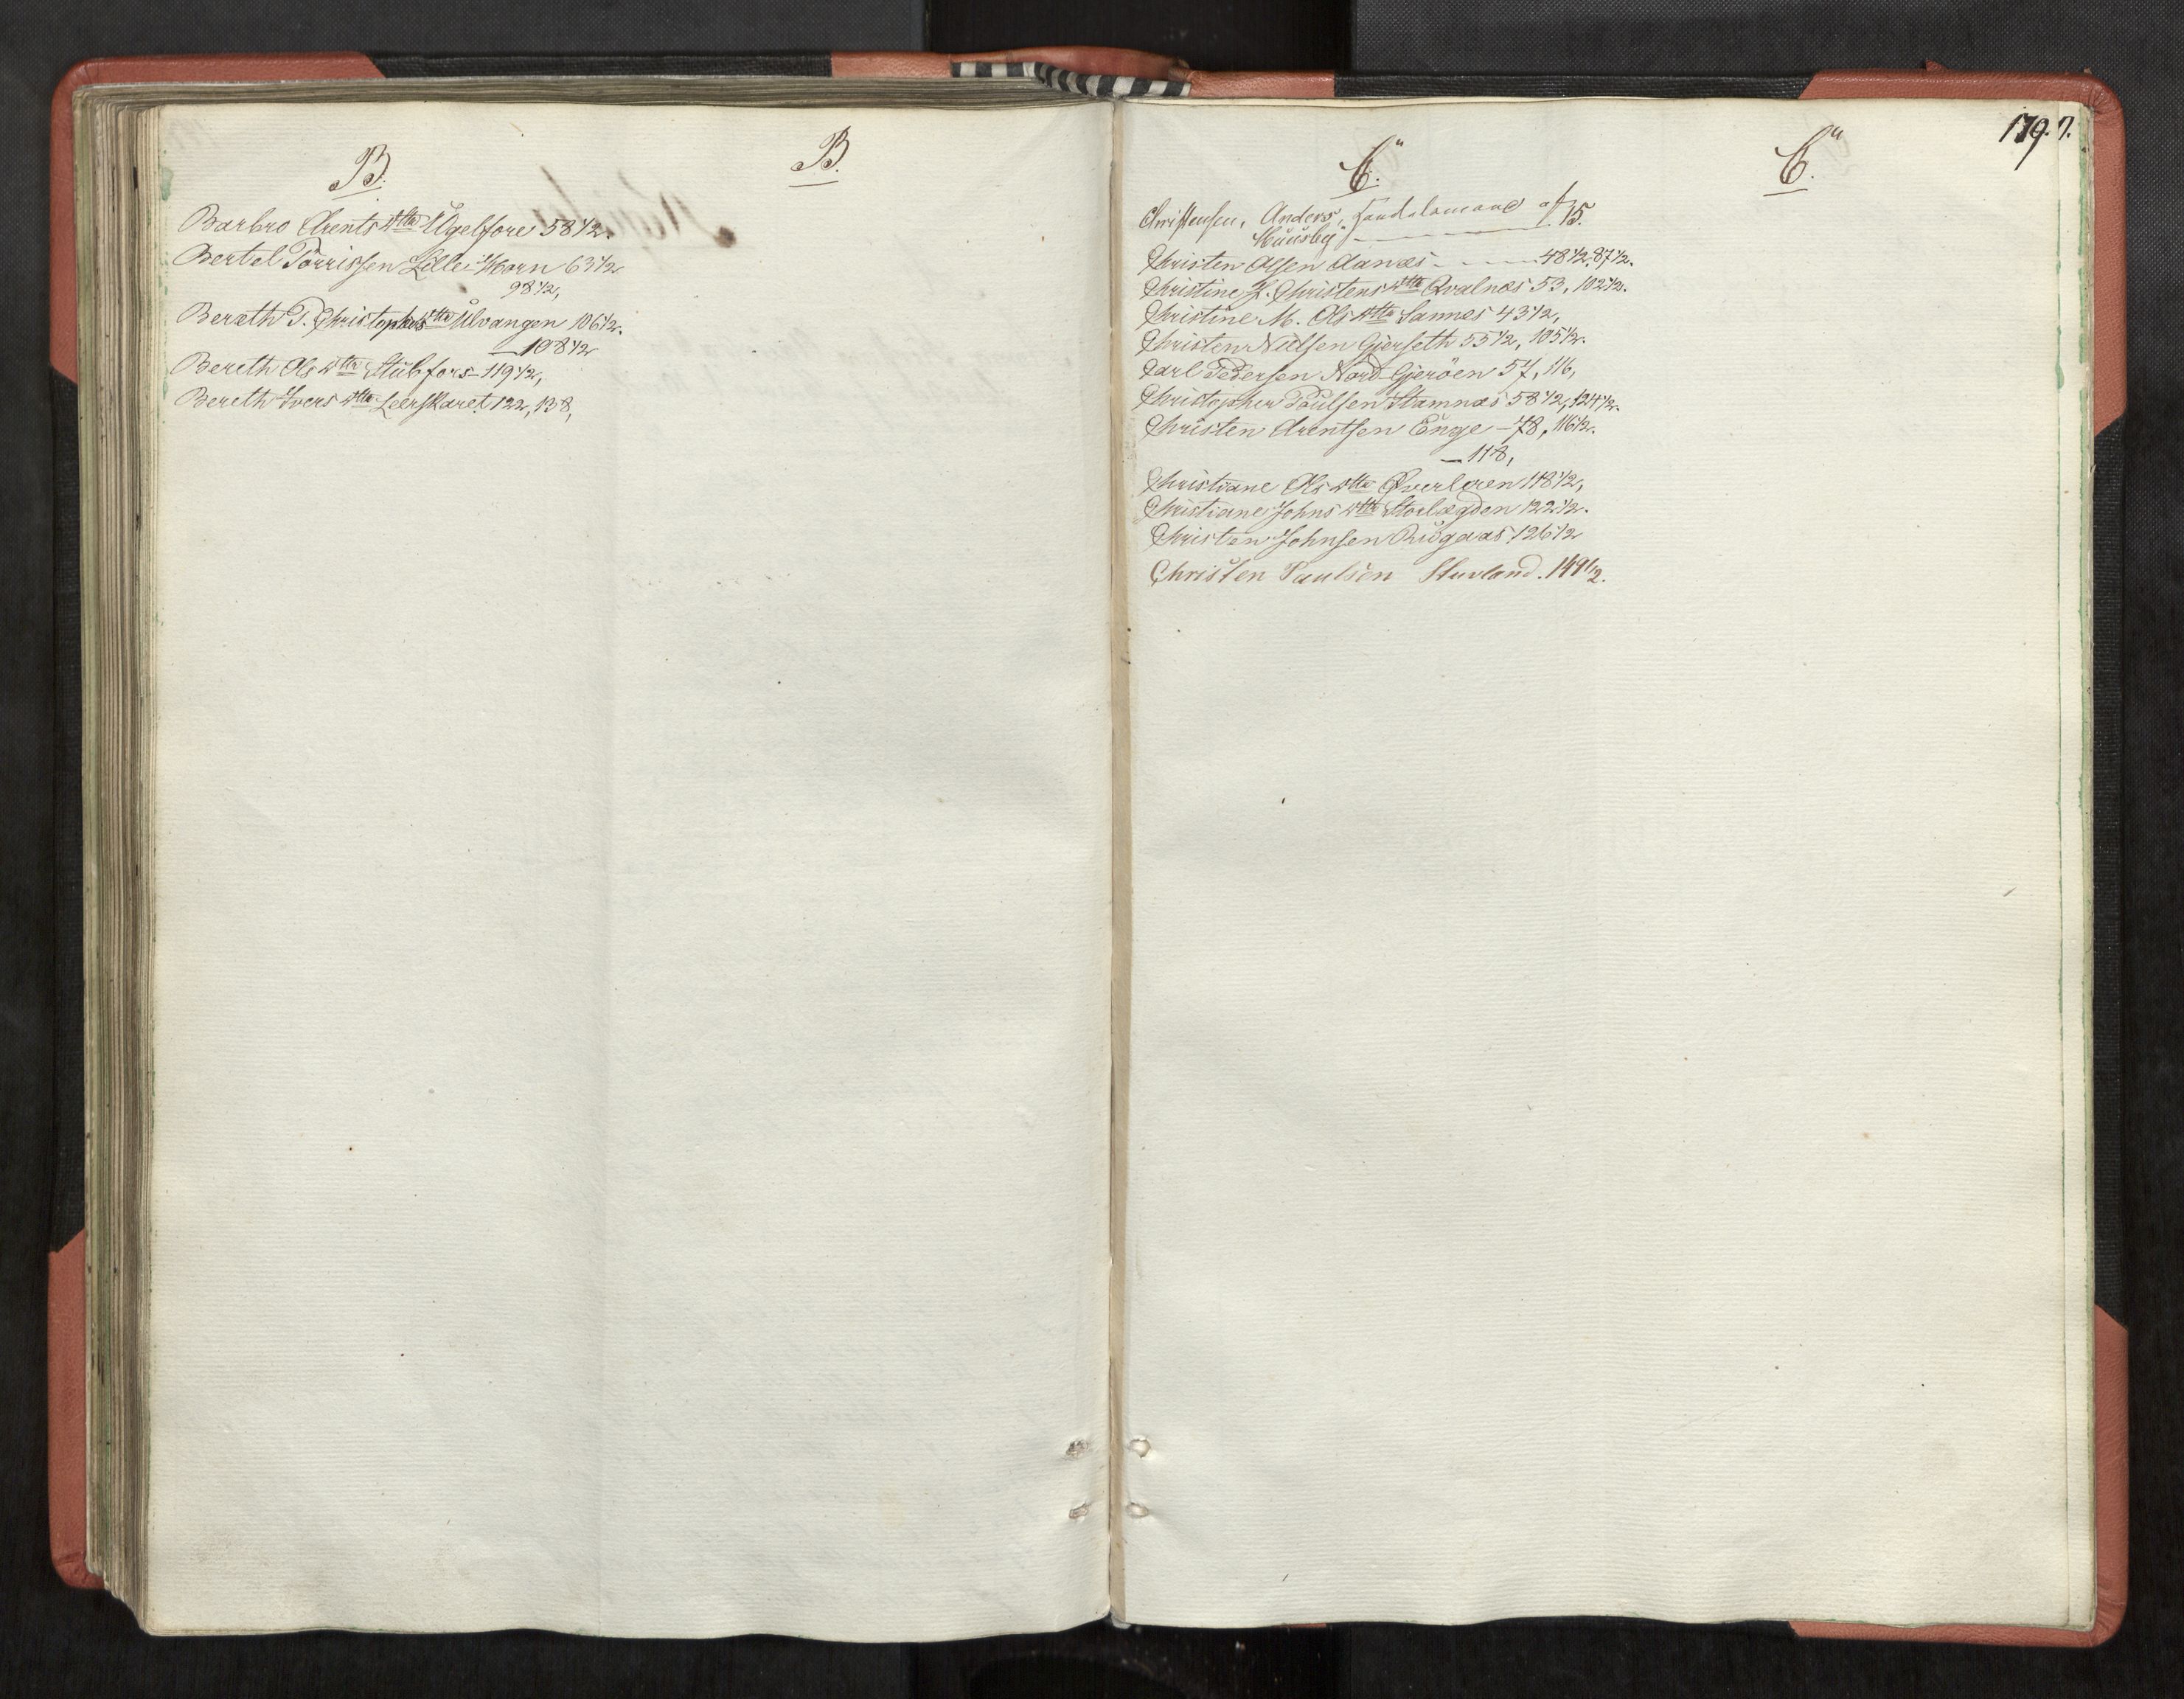 B.
B.
Barbro Arents dtta Ugelfore 58 1/2.
Bertel Torrissen Lille-Horn 63 1/2
98 1/2,
Berath P. Christophers dtta Ulvangen 106 1/2.
— 108 1/2
Bereth Ols dtta Stubfors — 119 1/2,
Bereth Ivers dtta Leerskaret 122, 138,
179. 7.
C.
C.
Christensen, Anders, Handelsmand af
Huusby 15.
Christen Olsen Aanæs 48 1/2, 87 1/2.
Christine J. Christens dtta Qvalnæs 53, 102 1/2.
Christine M. Ols dtta Sannes 43 1/2,
Christen Nielsen Gjerseth 55 1/2, 105 1/2.
Carl Pedersen Nord-Gjerøen 57, 116,
Christopher Poulsen Stamnæs 58 1/2, 124 1/2.
Christen Arentsen Enge — 78, 116 1/2.
— 118,
Christiane Ols dtta Øverleren 118 1/2,
Christiane Johns dtta Storlægden 122 1/2.
Christen Johnsen Riisgaas 126 1/2
Christen Paulsen Stuvland. 149 1/2.